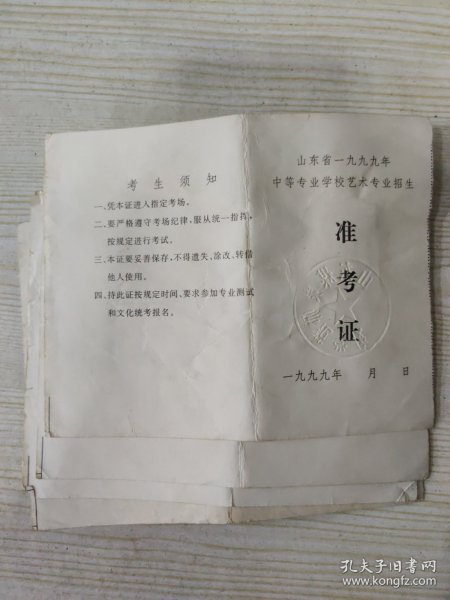 考生须知
一、凭本证进入指定考场。
二、要严格遵守考场纪律,服从统一指挥,
按规定进行考试。
三、本证要妥善保存,不得遗失、涂改、转借
他人使用。
四、持此证按规定时间、要求参加专业测试
和文化统考报名。
山东省一九九九年
中等专业学校艺术专业招生
准考证
一九九九年 月 日
孔夫子旧书网
www.kongfz.com